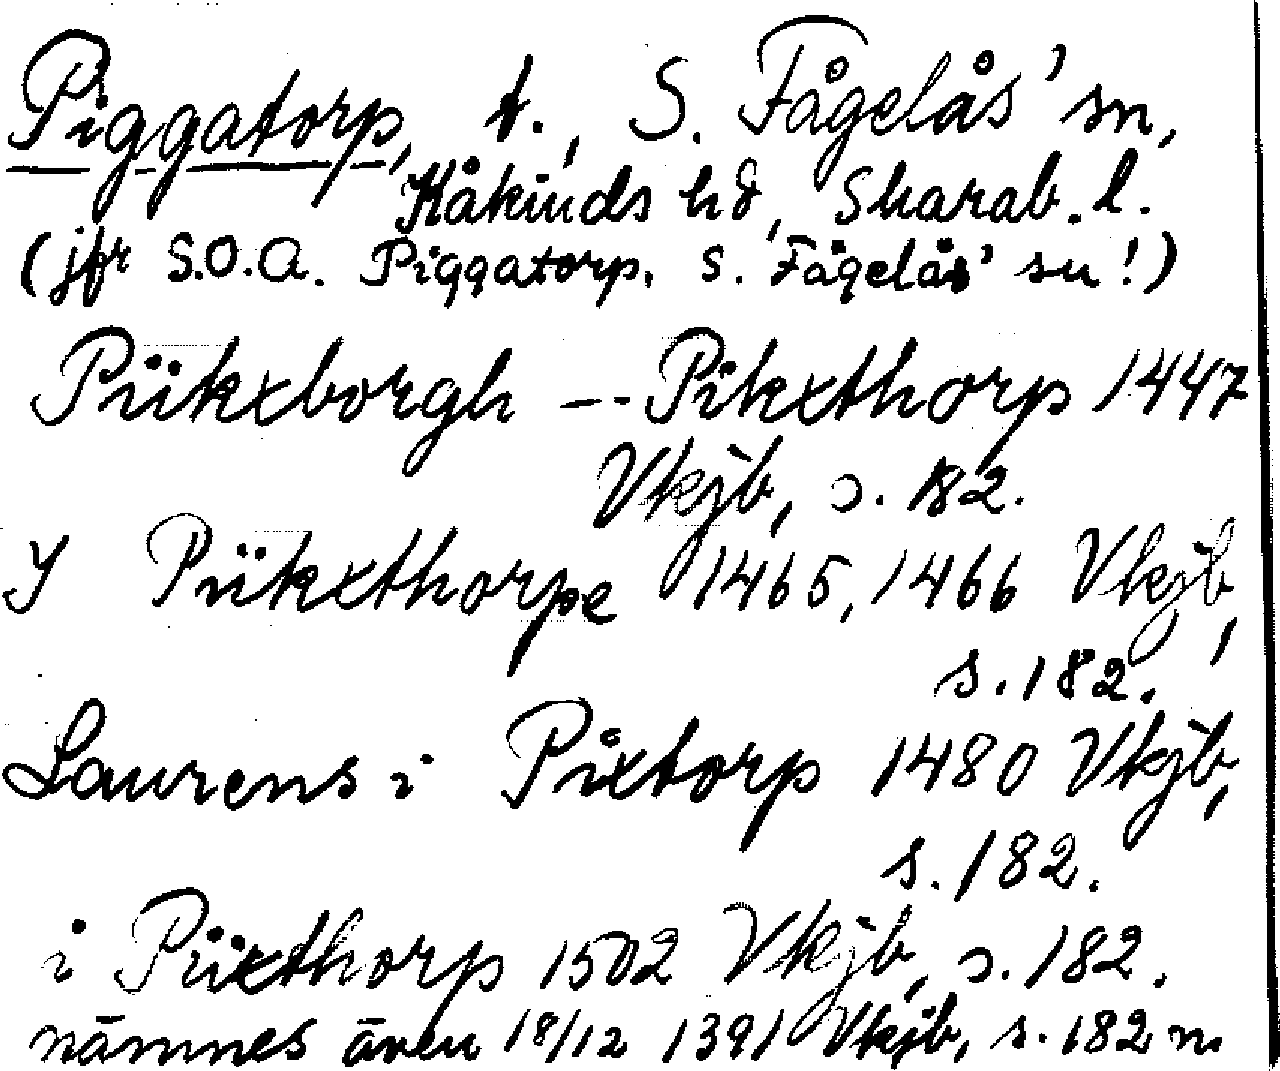 Piggatorp, t., S. Fågelås' sn,
Kåkinds hd, Skarab. l.
(jfr S.O.A. Piggatorp. S. Fågelås' sn!)
Piikxborgh --Pikxthorp 1447
Vkjb, s. 182.
I Piikxthorpe 1465, 1466 Vkjb,
s. 182.
Laurens i Pixtorp 1480 Vkjb,
s. 182.
i Piixthorp 1502 Vkjb, s. 182.
nämnes även 18/12 1391 Vkjb, s. 182 n.